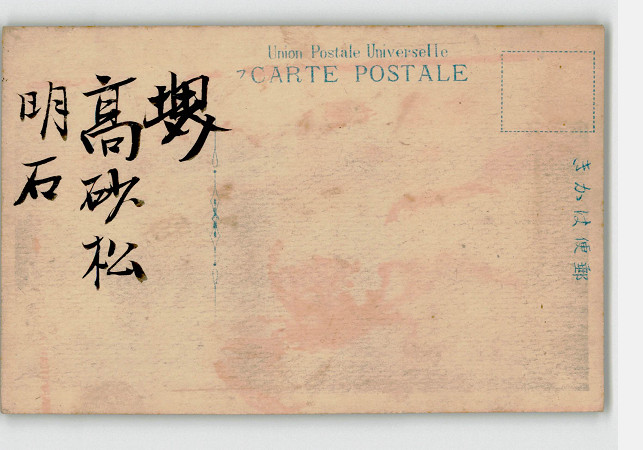 Union Postale Universelle
CARTE POSTALE
郵便はかき
堺
高砂松
明石